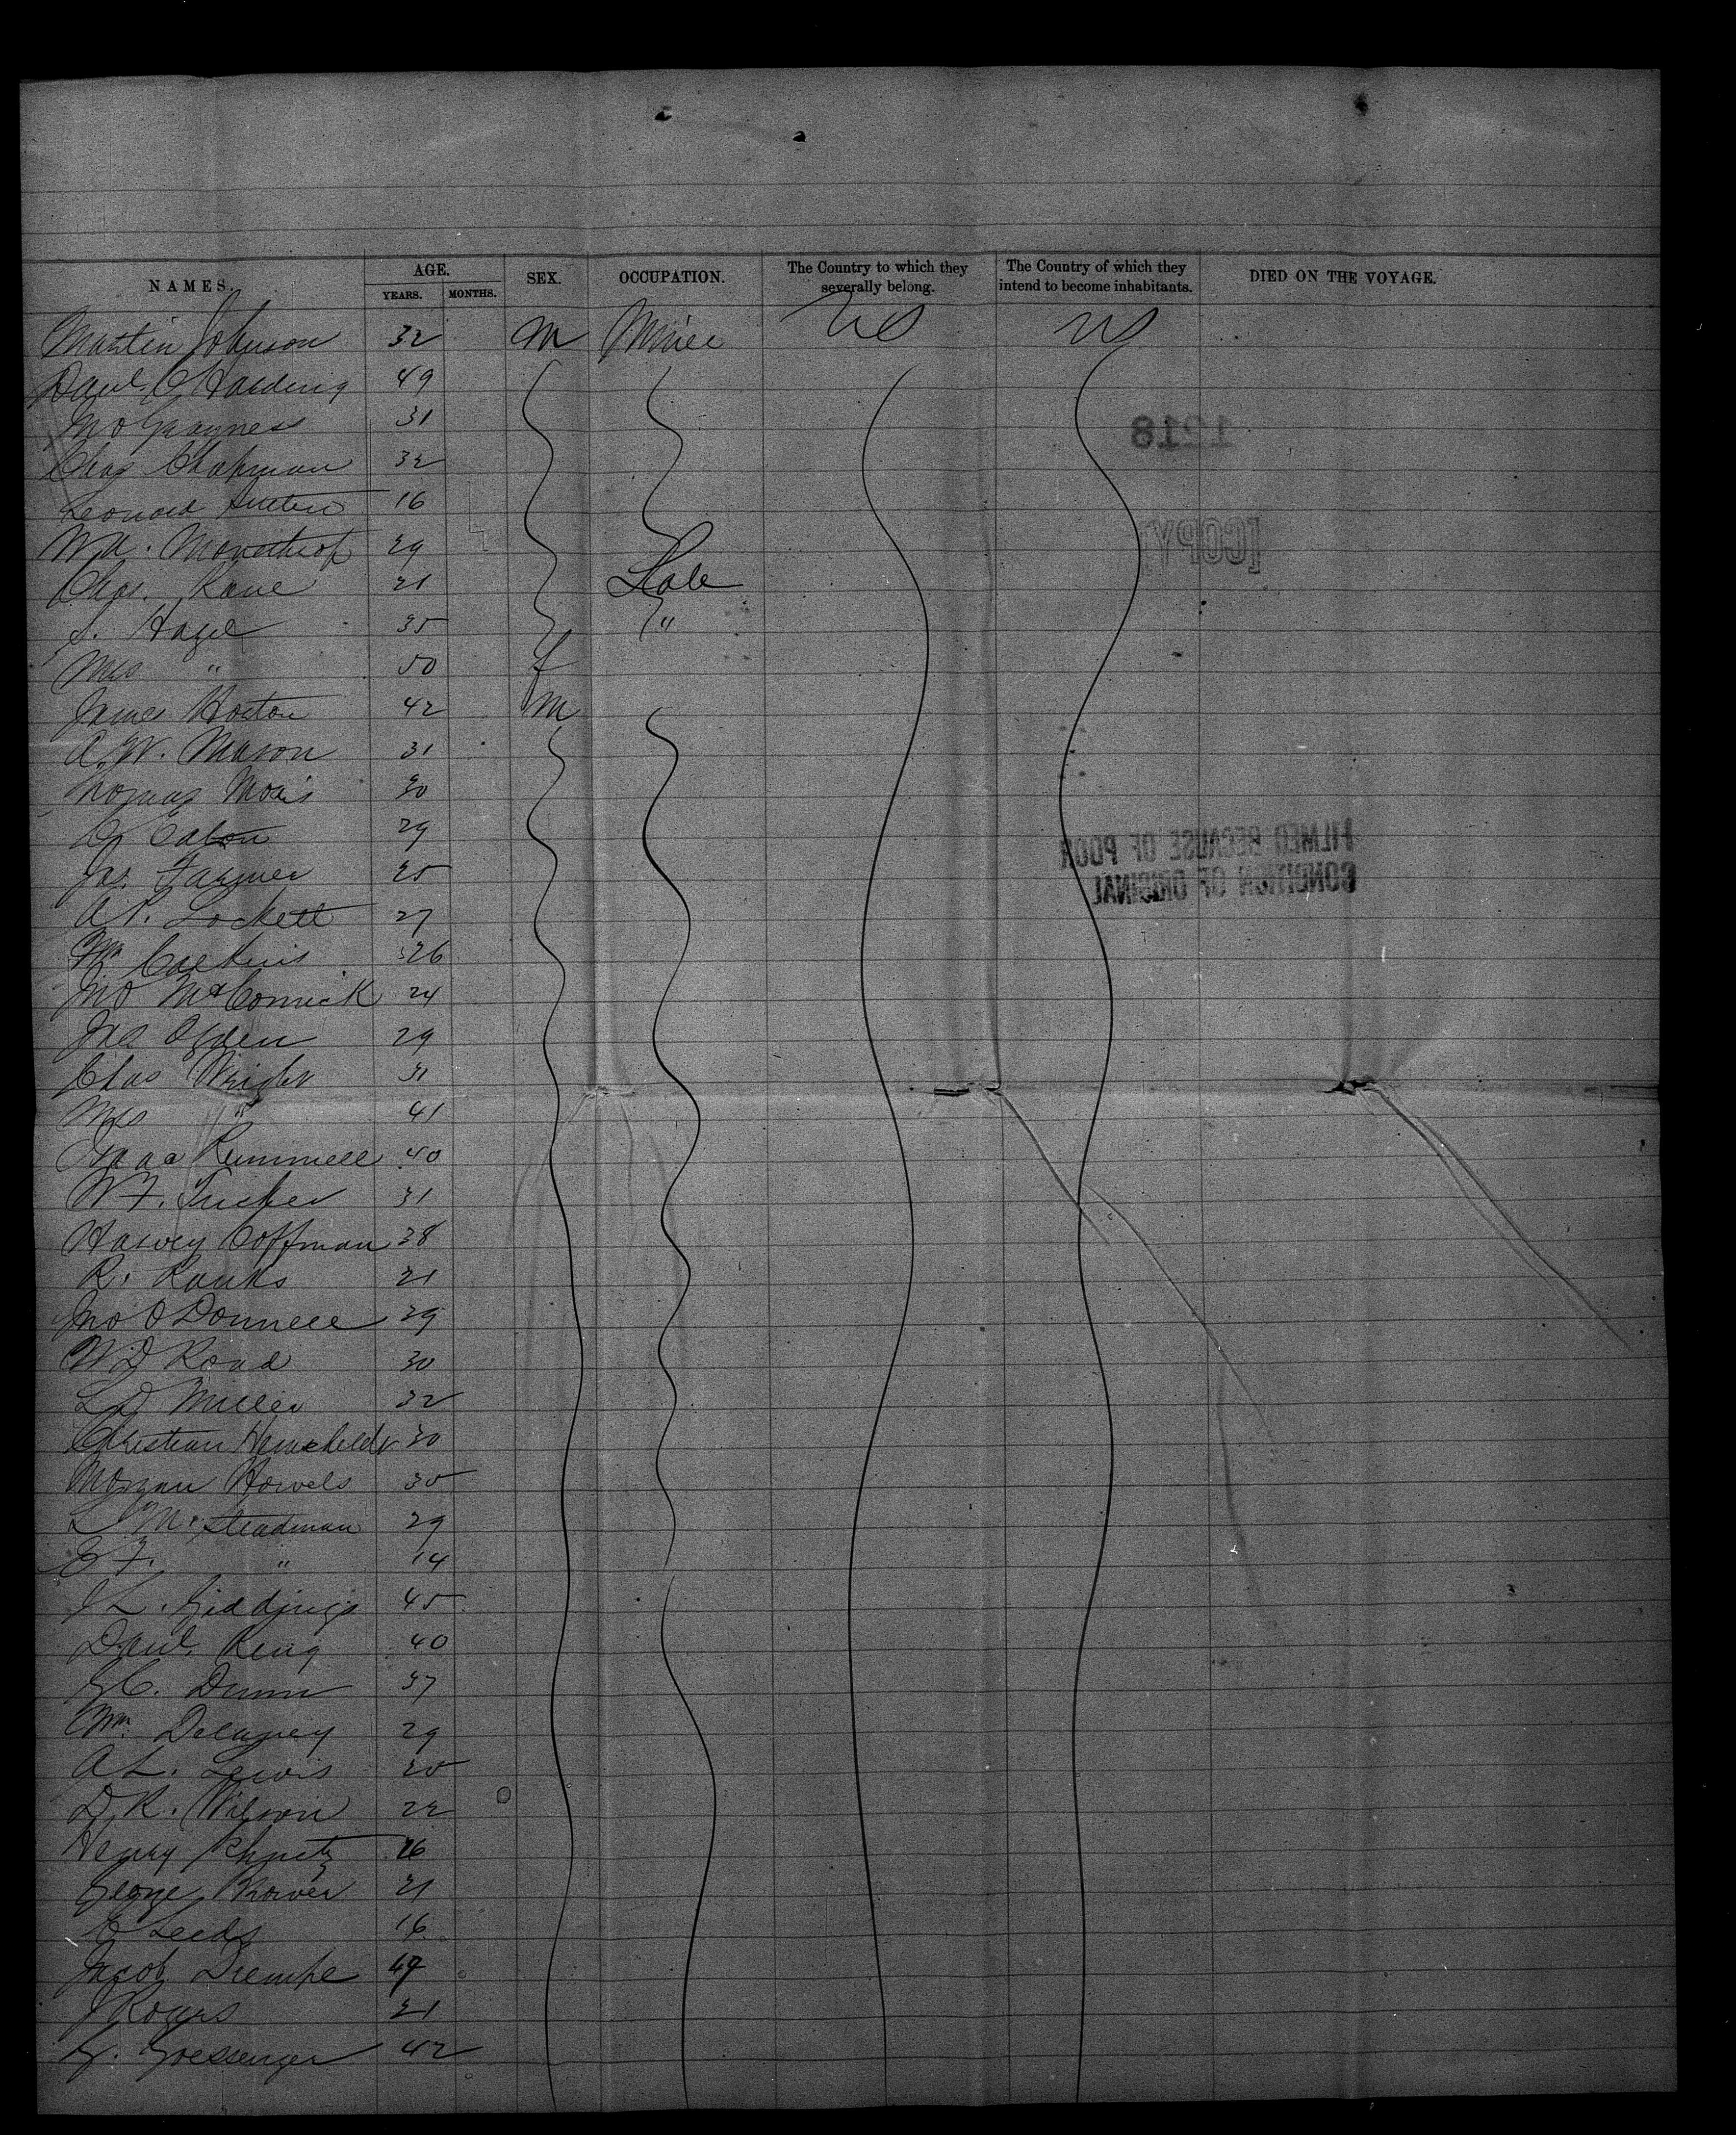 NAMES. AGE. SEX. OCCUPATION. The Country to which they severally belong. The Country of which they intend to become inhabitants. DIED ON THE VOYAGE.
YEARS. MONTHS.
Martin Johnson 32 M Miner US US
Danl C Harding 49
Jno Graynes 31
Chas Chapman 32
Leonard 16
Wm. 29
Chas. Kane 21 Lab
S. Hagel 35 "
Mrs " 50 f
James Horton 42 M
A. W. Mason 31
Thomas Moris 30
Eaton 29
Jas. Farmer 25
A. P. Lockett 27
Wm Calkins 26
Jno McCormick 24
Jas Ogden 29
Chas Wright 31
Mrs " 41
Isaac Rummell 40
W. F. Tucker 31
Harvey Coffman 38
R. Ranks 21
Jno O Donnell 29
W D Road 30
L D Miller 32
Christian 30
Morgan Howels 35
L M. Steadman 29
E F. " 14
J L. Giddings 45
Danl. King 40
G C. Dunn 37
Wm. Delaney 29
A L. Lewis 25
D. R. Wilson 22
Henry 26
George Brower 21
E Leeds 16
Jacob 49
J Rogers 21
G. Goessenger 42
1218
[COPY]
FILMED BECAUSE OF POOR
CONDITION OF ORIGINAL